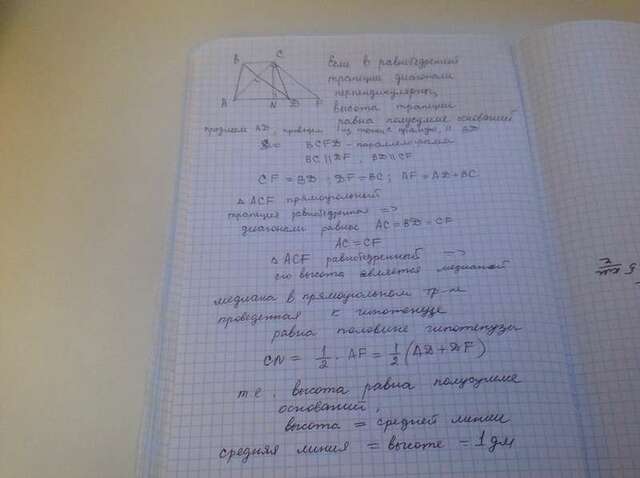 B C
A N D F
Если в равнобедренной
трапеции диагонали
перпендикулярны,
высота трапеции
равна полусумме оснований
продлим AD, проведем из точки C прямую, || BD
BCFD - параллелограмм
BC || DF, BD || CF
CF = BD DF = BC; AF = AD + BC
△ ACF прямоугольный
трапеция равнобедренная =>
диагонали равное AC = BD = CF
AC = CF
△ ACF равнобедренный =>
его высота является медианой
медиана в прямоугольном тр-ке
проведенная к гипотенузе
равна половине гипотенузы
CN = 1/2 · AF = 1/2 (AD + DF)
т.е. высота равна полусумме
оснований,
высота = средней линии
средняя линия = высоте = 1 дм